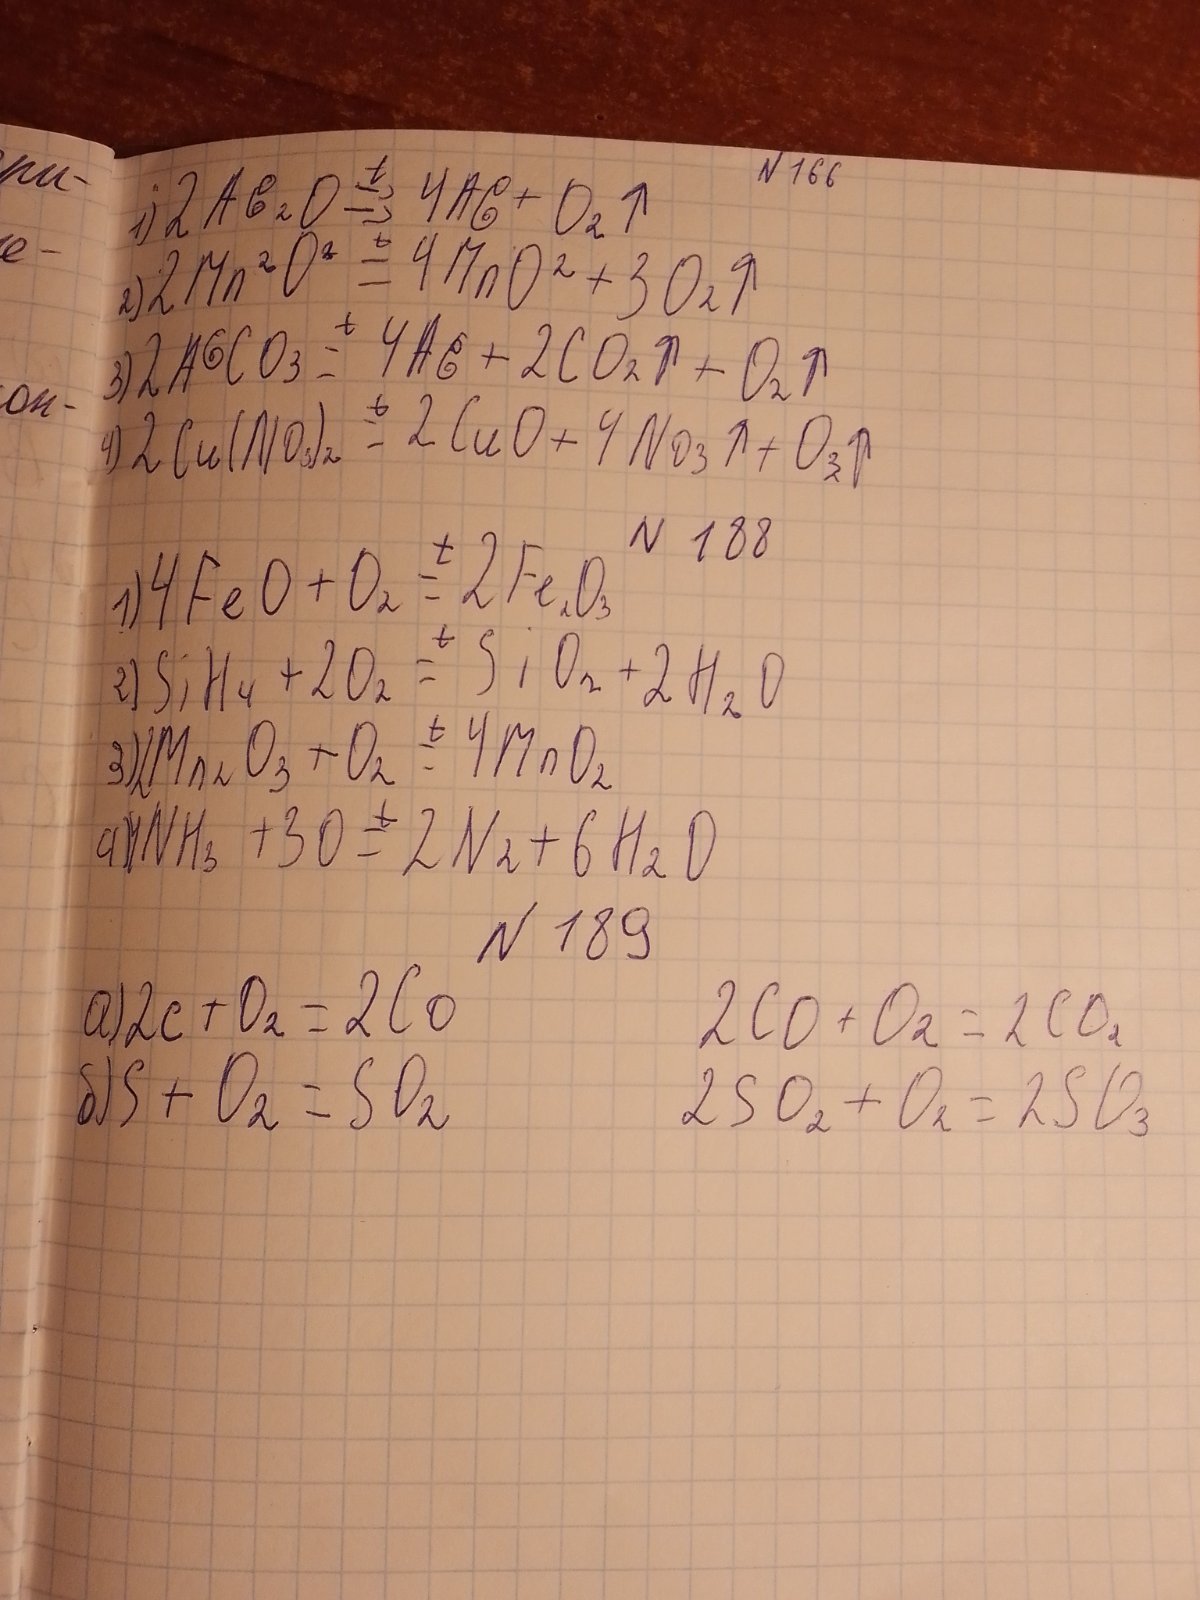 ри-
е-
он-
N 166
1) 2Ag₂O =ᵗ 4Ag + O₂↑
2) 2Mn²O² =ᵗ 4MnO² + 3O₂↑
3) 2AgCO₃ =ᵗ 4Ag + 2CO₂↑ + O₂↑
4) 2Cu(NO₃)₂ =ᵗ 2CuO + 4NO₃↑ + O₂↑
N 188
1) 4FeO + O₂ =ᵗ 2Fe₂O₃
2) SiH₄ + 2O₂ =ᵗ SiO₂ + 2H₂O
3) 2Mn₂O₃ + O₂ =ᵗ 4MnO₂
4) 4NH₃ + 3O =ᵗ 2N₂ + 6H₂O
N 189
а) 2c + O₂ = 2CO 2CO + O₂ = 2CO₂
б) S + O₂ = SO₂ 2SO₂ + O₂ = 2SO₃